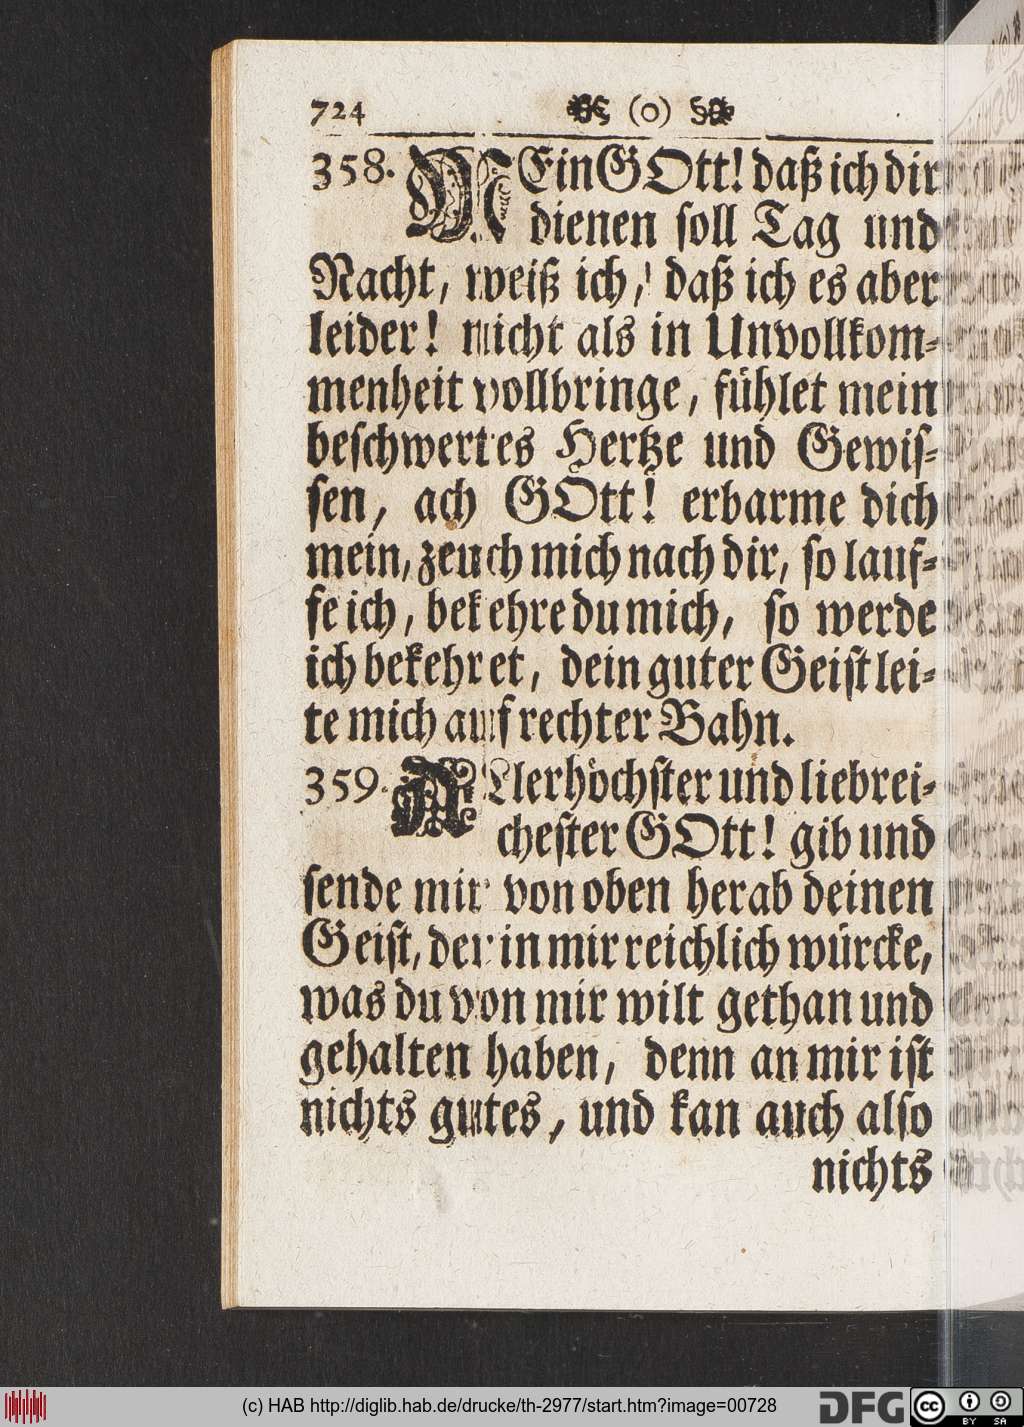 724 (o)
358. MEin GOtt! daß ich dir
dienen soll Tag und
Nacht, weiß ich, daß ich es aber
leider! nicht als in Unvollkom-
menheit vollbringe, fühlet mein
beschwertes Hertze und Gewis-
sen, ach GOtt! erbarme dich
mein, zeuch mich nach dir, so lauf-
fe ich, bekehre du mich, so werde
ich bekehret, dein guter Geist lei-
te mich auf rechter Bahn.
359. ALlerhöchster und liebrei-
chester GOtt! gib und
sende mir von oben herab deinen
Geist, der in mir reichlich würcke,
was du von mir wilt gethan und
gehalten haben, denn an mir ist
nichts gutes, und kan auch also
nichts
(c) HAB http://diglib.hab.de/drucke/th-2977/start.htm?image=00728
DFG
cc BY SA